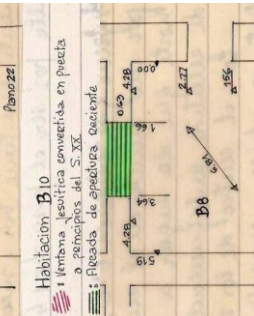 Plano 22
Habitación B10
: Ventana jesuítica convertida en puerta
a principios del S. XX
: Arcada de apertura reciente
0.63
4.28
4.28
0.00
1.66
3.64
5.19
2.77
1.56
6.81
B8